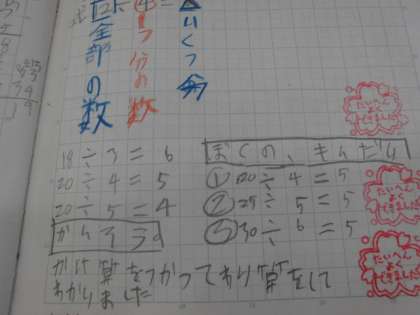 全部の数
1つ分の数
いくつ分
18÷3=6
20÷4=5
20÷5=4
ぼくの、きんだい
①20÷4=5
②25÷5=5
③30÷6=5
かけ算をつかってわり算をして
わかりました
たいへん
よく
できました
たいへん
よく
できました
たいへん
よく
できました